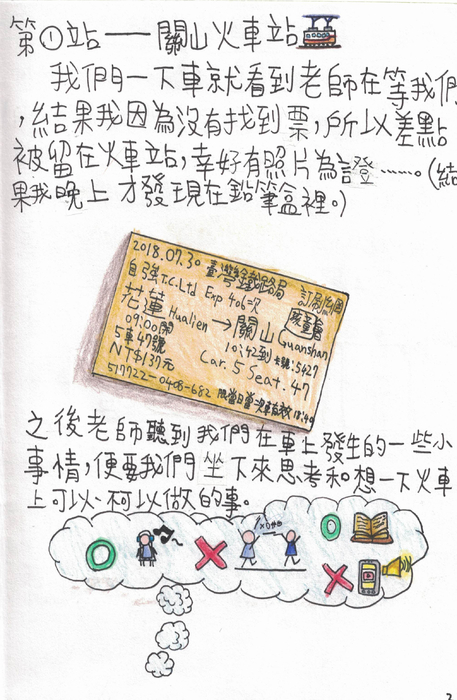 第①站——關山火車站
我們一下車就看到老師在等我們
,結果我因為沒有找到票,所以差點
被留在火車站,幸好有照片為證……。(結
果我晚上才發現在鉛筆盒裡。)
2018.07.30 臺灣鐵路局
自強T.C.Ltd Exp 406次
花蓮 Hualien → 關山 Guanshan
孩童
09:00開
10:42到
5車47號
Car. 5 Seat. 47
NT$137元
517722-0408-682
之後老師聽到我們在車上發生的一些小
事情,便要我們坐下來思考和想一下火車
上可以、不可以做的事。